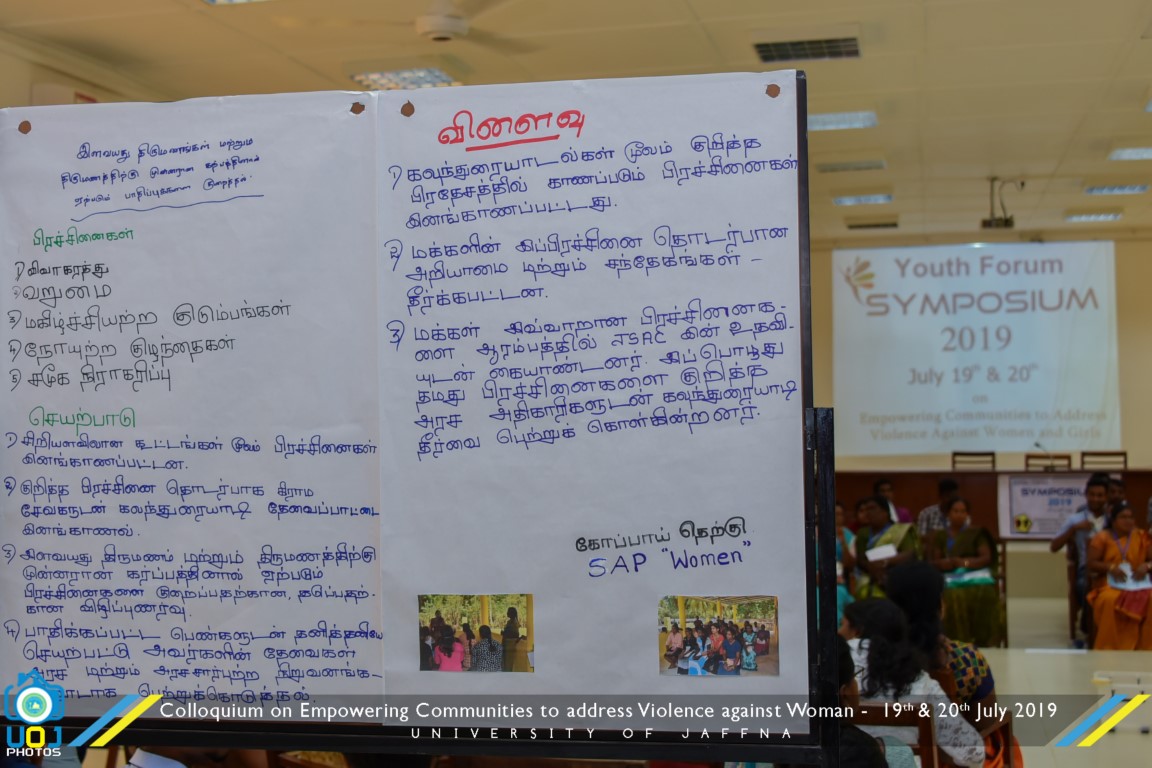 இளவயது திருமணங்கள் மற்றும்
திருமணத்திற்கு முன்னரான கற்பத்தினால்
ஏற்படும் பாதிப்புக்களை குறைத்தல்.
பிரச்சினைகள்
1) விவாகரத்து
2) வறுமை
3) மகிழ்ச்சியற்ற குடும்பங்கள்
4) நோயுற்ற குழந்தைகள்
5) சமூக நிராகரிப்பு
செயற்பாடு
1) சிறியளவிலான கூட்டங்கள் மூலம் பிரச்சினைகள்
இனங்காணப்பட்டன.
2) குறித்த பிரச்சினை தொடர்பாக கிராம
சேவகருடன் கலந்துரையாடி தேவைப்பாட்டை
இனங்காணல்.
3) இளவயது திருமணம் மற்றும் திருமணத்திற்கு
முன்னரான கர்ப்பத்தினால் ஏற்படும்
பிரச்சினைகளை குறைப்பதற்கான, தடுப்பதற்-
கான விழிப்புணர்வு.
4) பாதிக்கப்பட்ட பெண்களுடன் தனித்தனியே
செயற்பட்டு அவர்களின் தேவைகள்
அரச மற்றும் அரசசார்பற்ற நிறுவனங்க-
பெற்றுக்கொடுத்தல்.
விளைவு
1) கலந்துரையாடல்கள் மூலம் குறித்த
பிரதேசத்தில் காணப்படும் பிரச்சினைகள்
இனங்காணப்பட்டது.
2) மக்களின் இப்பிரச்சினை தொடர்பான
அறியாமை மற்றும் சந்தேகங்கள் -
தீர்க்கபட்டன.
3) மக்கள் அவ்வாறான பிரச்சினைக-
ளை ஆரம்பத்தில் JSAC இன் உதவி-
யுடன் கையாண்டனர். அப்பொழுது
தமது பிரச்சினைகளை குறித்த
அரச அதிகாரிகளுடன் கலந்துரையாடி
தீர்வை பெற்றுக் கொள்கின்றனர்.
கோப்பாய் தெற்கு
SAP "Women"
Youth Forum
SYMPOSIUM
2019
July 19th & 20th
on
Empowering Communities to Address
Violence Against Women and Girls
SYMPOSIUM
2019
UOJ
PHOTOS
Colloquium on Empowering Communities to address Violence against Woman - 19th & 20th July 2019
UNIVERSITY OF JAFFNA